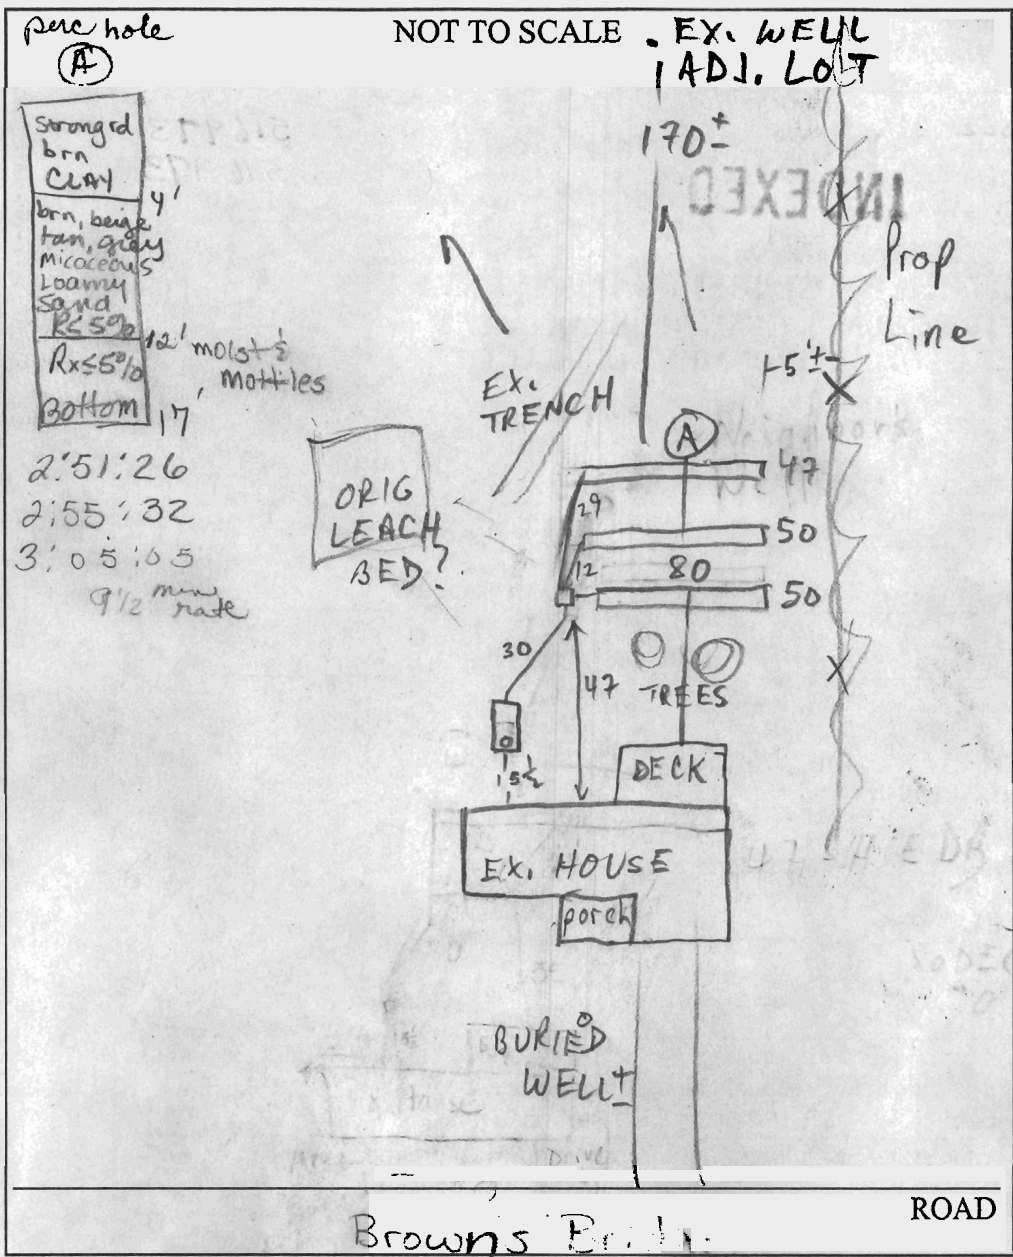 perc hole
A
NOT TO SCALE
. EX. WELL
ADJ. LOT
strong rd
brn
CLAY
4'
brn, beige
tan, gray
micaceous
Loamy
Sand
R≤5%
12' moist &
mottles
Rx≤5%
Bottom
17'
2:51:26
2:55:32
3:05:05
9 1/2 min
rate
170±
INDEXED
Prop
Line
15'±
EX.
TRENCH
ORIG
LEACH
BED?
A
47
29
50
12
80
50
30
47
TREES
DECK
EX. HOUSE
porch
BURIED
WELL±
ROAD
Browns